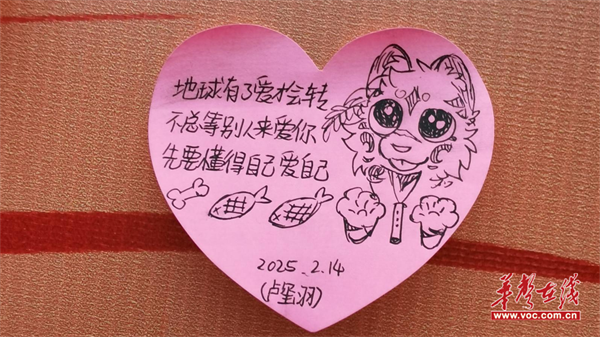 地球有了爱才会转
不总等别人来爱你
先要懂得自己爱自己
2025.2.14
华声在线
www.voc.com.cn